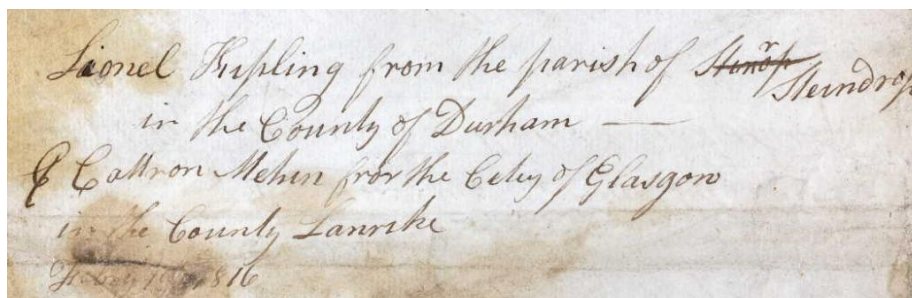 Lionel Kipling from the parish of Steindrop
in the County of Durham —
& Cattron Mehin fror the Citey of Glasgow
in the County Lanrike
1816